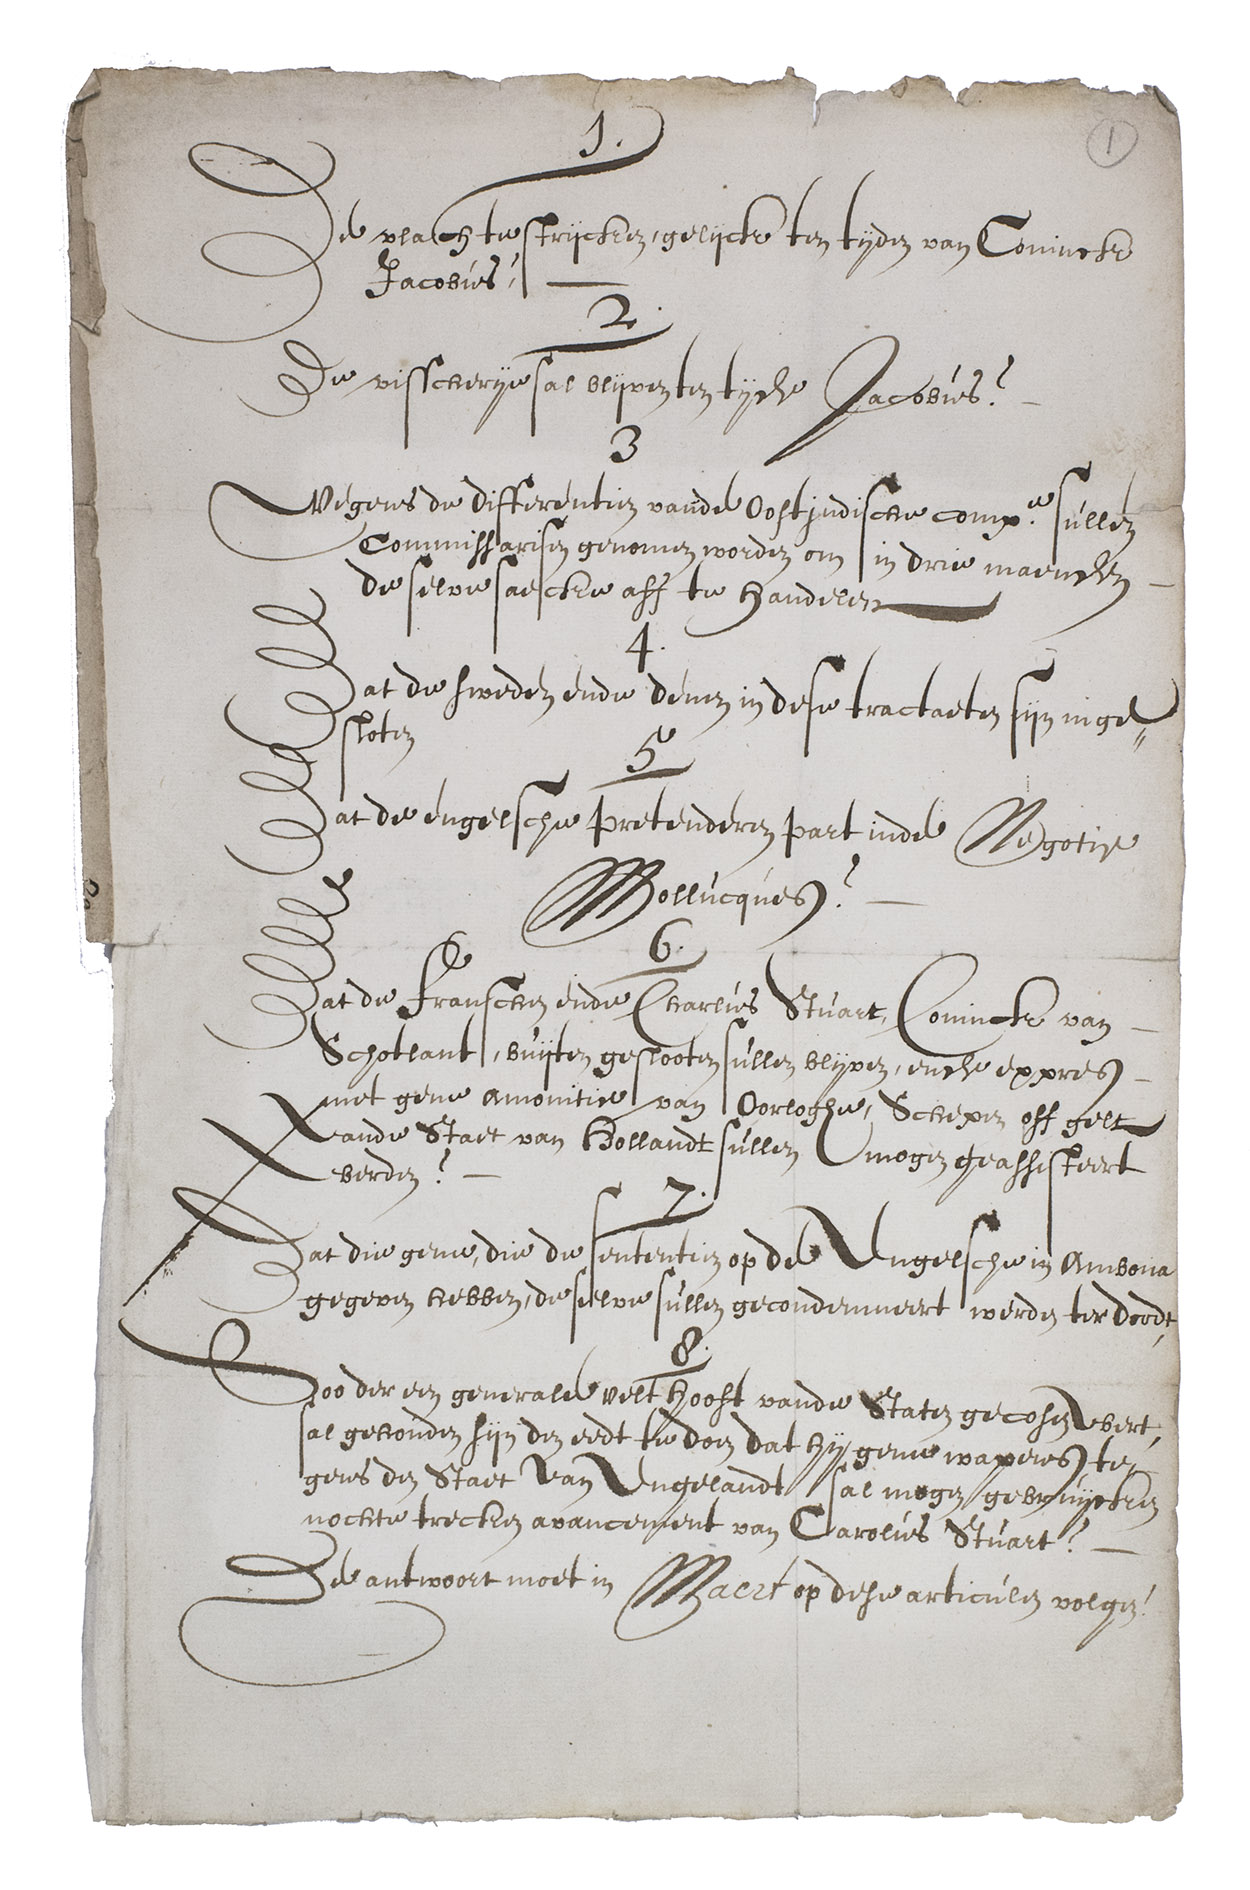 1.
1
De vlach te strijcken, gelijck ten tyden van Coninck
Jacobus,
2.
De visscherije sal blijven ten tijde Jacobus.
3
Wegens de differentien vande Oostjndische comp.e sullen
Commissarisen genomen worden om in drie maenden
de selve saecke aff te handelen
4.
Dat de sweden ende denen in dese tractaeten sijn inge„
sloten
5
Dat de engelsche pretenderen part inde Negotie
Mollucques.
6.
Dat de franschen ende Charlus Stuart, Coninck van
Schotlant, buijten geslooten sullen blijven, ende expres
met gene amonitie van Oorloghe, Schepen off gelt
vande Staet van Hollandt sullen mogen geassisteert
werden.
7.
Dat die gene, die de sententien op de Engelsche in Ambona
gegeven hebben, deselve sullen gecondemneert werden ter doodt,
8.
Soo der een generale velt hooft vande Staten gecosen wert,
sal gehouden sijn den eedt te doen dat hij gene wapenes te„
gens den Staet van Engelandt sal mogen gebruijcken
nochte trecken avancement van Carolus Stuart.
De antwoort moet in Maert op dese articulen volgen.